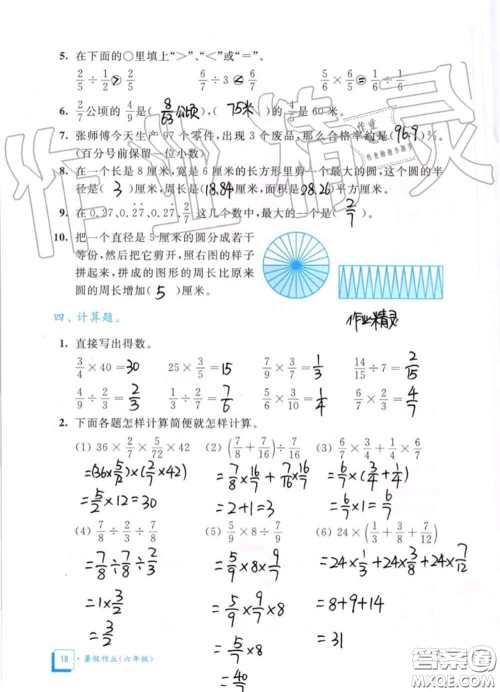 5. 在下面的○里填上“>”、“<”或“=”。
2/5 ÷ 1/2 > 2/5 6/7 ÷ 3 < 6/7 5/6 × 1/6 1/6 ÷ 1/6
6. 2/7公顷的4/9是( 8/63公顷 ), ( 75米 )的4/5是60米。
7. 张师傅今天生产97个零件,出现3个废品,那么合格率约是(96.9)%。
(百分号前保留一位小数)
8. 在一个长是8厘米,宽是6厘米的长方形里剪一个最大的圆,这个圆的半
径是( 3 )厘米,周长是(18.84)厘米,面积是(28.26)平方厘米。
9. 在 0.27, 0.27, 0.27, 2/7 这几个数中,最大的一个是( 2/7 )。
10. 把一个直径是5厘米的圆分成若干
等份,然后把它剪开,照右图的样子
拼起来,拼成的图形的周长比原来
圆的周长增加( 5 )厘米。
作业精灵
四、计算题。
1. 直接写出得数。
3/4 × 40 = 30 25 × 3/5 = 15 7/9 × 3/7 = 1/3 14/15 ÷ 7 = 2/15
4/9 ÷ 2/3 = 2/3 1/2 ÷ 3/7 = 7/6 5/6 × 3/10 = 1/4 4/7 ÷ 4 = 1/7
2. 下面各题怎样计算简便就怎样计算。
(1) 36 × 2/7 × 5/72 × 42 (2) (7/8 + 7/16) ÷ 7/16 (3) 6/7 × 3/4 + 1/4 × 6/7
= (36 × 5/72) × (2/7 × 42) = 7/8 × 16/7 + 7/16 × 16/7 = 6/7 × (3/4 + 1/4)
= 5/2 × 12 = 30 = 2+1 = 3 = 6/7 × 1 = 6/7
(4) 7/8 ÷ 2/3 ÷ 7/8 (5) 5/9 × 8 ÷ 7/9 (6) 24 × (1/3 + 3/8 + 7/12)
= 7/8 ÷ 7/8 ÷ 2/3 = 5/9 × 8 × 9/7 = 24 × 1/3 + 24 × 3/8 + 24 × 7/12
= 1 × 3/2 = 5/9 × 9/7 × 8 = 8+9+14
= 3/2 = 5/7 × 8 = 31
= 40/7
18 · 暑假作业(六年级)
作业精灵
MXQE.COM